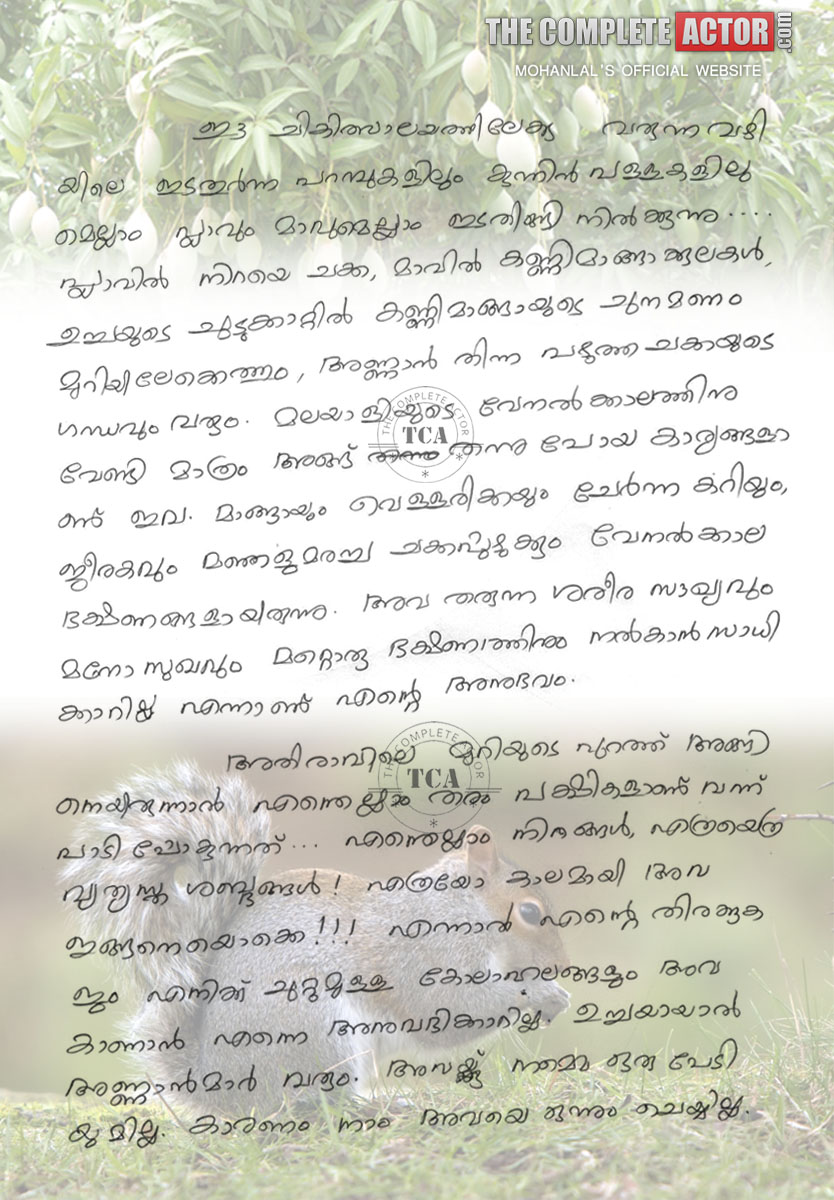 THE COMPLETE ACTOR.com
MOHANLAL'S OFFICIAL WEBSITE
ഈ ചികിത്സാലയത്തിലേക്കു വരുന്ന വഴി
യിലെ ഇടതൂർന്ന പറമ്പുകളിലും കുന്നിൻ പള്ളകളിലു
മെല്ലാം പ്ലാവും മാവുമെല്ലാം ഇടതിങ്ങി നിൽക്കുന്നു....
പ്ലാവിൽ നിറയെ ചക്ക, മാവിൽ കണ്ണിമാങ്ങാക്കുലകൾ,
ഉച്ചയുടെ ചുട്ടുകാറ്റിൽ കണ്ണിമാങ്ങായുടെ ചുനമണം
മുറിയിലേക്കെത്തും, അണ്ണാൻ തിന്ന പഴുത്ത ചക്കയുടെ
ഗന്ധവും വരും. മലയാളിയുടെ വേനൽക്കാലത്തിനു
വേണ്ടി മാത്രം അങ്ങ് തന്നു പോയ കാര്യങ്ങളാ
ണ് ഇവ. മാങ്ങായും വെള്ളരിക്കയും ചേർന്ന കറിയും,
ജീരകവും മഞ്ഞളുമരച്ച ചക്കപ്പുഴുക്കും വേനൽക്കാല
ഭക്ഷണങ്ങളായിരുന്നു. അവ തരുന്ന ശരീര സൗഖ്യവും
മനോസുഖവും മറ്റൊരു ഭക്ഷണത്തിനും നൽകാൻ സാധി
ക്കാറില്ല എന്നാണ് എന്റെ അനുഭവം.
അതിരാവിലെ മുറിയുടെ പുറത്ത് അങ്ങി
നെയിരുന്നാൽ എന്തെല്ലാം തരം പക്ഷികളാണ് വന്ന്
പാടി പോകുന്നത്... എന്തെല്ലാം നിറങ്ങൾ, എത്രയെത്ര
വ്യത്യസ്ത ശബ്ദങ്ങൾ! എത്രയോ കാലമായി അവ
ഇങ്ങനെയൊക്കെ!!! എന്നാൽ എന്റെ തിരക്കുക
ളും എനിക്ക് ചുറ്റുമുള്ള കോലാഹലങ്ങളും അവ
കാണാൻ എന്നെ അനുവദിക്കാറില്ല. ഉച്ചയായാൽ
അണ്ണാൻമാർ വരും. അവയ്ക്ക് നമ്മെ ഒരു പേടി
യുമില്ല. കാരണം നാം അവയെ ഒന്നും ചെയ്യില്ല.
THE COMPLETE ACTOR
TCA
THE COMPLETE ACTOR
TCA